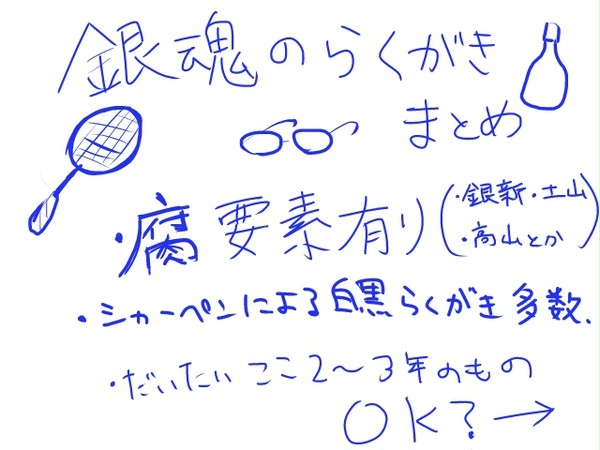 銀魂のらくがき
まとめ
・腐要素有り(・銀新・土山
・高山とか)
・シャーペンによる白黒らくがき多数、
・だいたいここ2〜3年のもの
OK?→